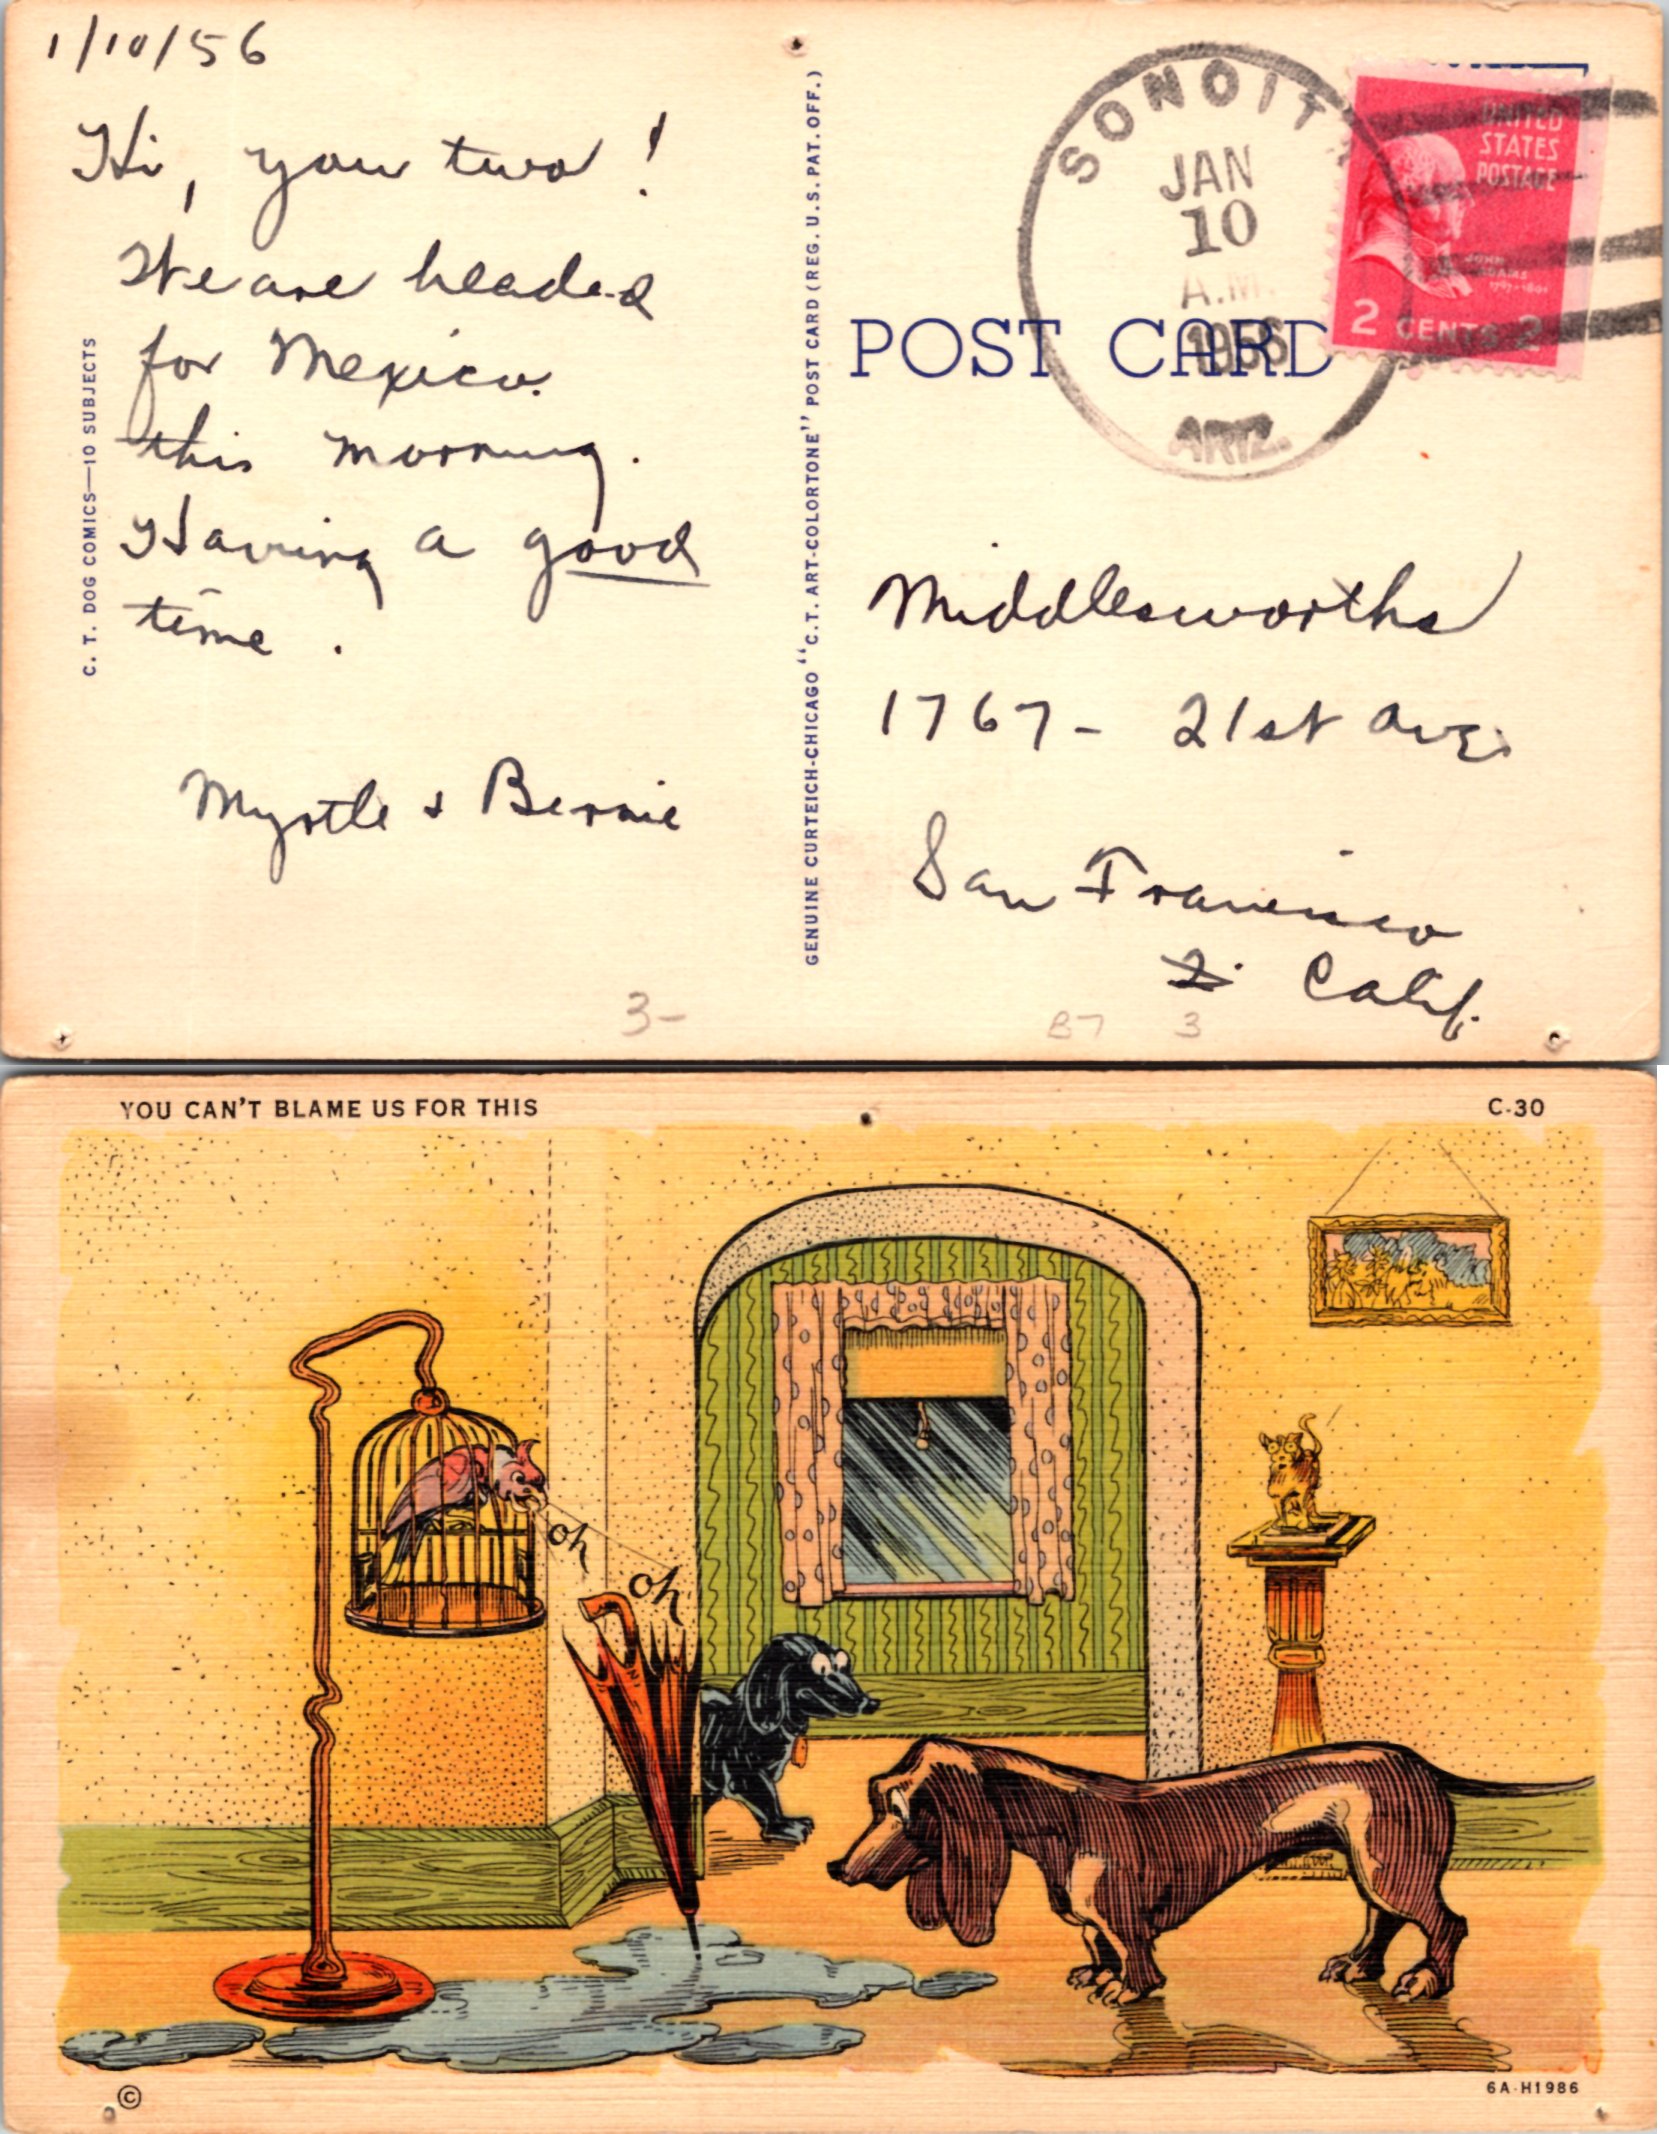 1/10/56
Hi, you two!
We are headed
for Mexico.
this morning.
Having a good
time.
Myrtle & Bernie
C. T. DOG COMICS—10 SUBJECTS
GENUINE CURTEICH-CHICAGO "C.T. ART-COLORTONE" POST CARD (REG. U.S. PAT. OFF.)
SONOITA
JAN
10
A.M.
1956
ARIZ.
UNITED
STATES
POSTAGE
JOHN
ADAMS
1797-1801
2 CENTS 2
POST CARD
Middlesworths
1767- 21st Ave.
San Francisco
2. Calif.
3-
B7 3
YOU CAN'T BLAME US FOR THIS
C-30
oh
oh
©
6A-H1986